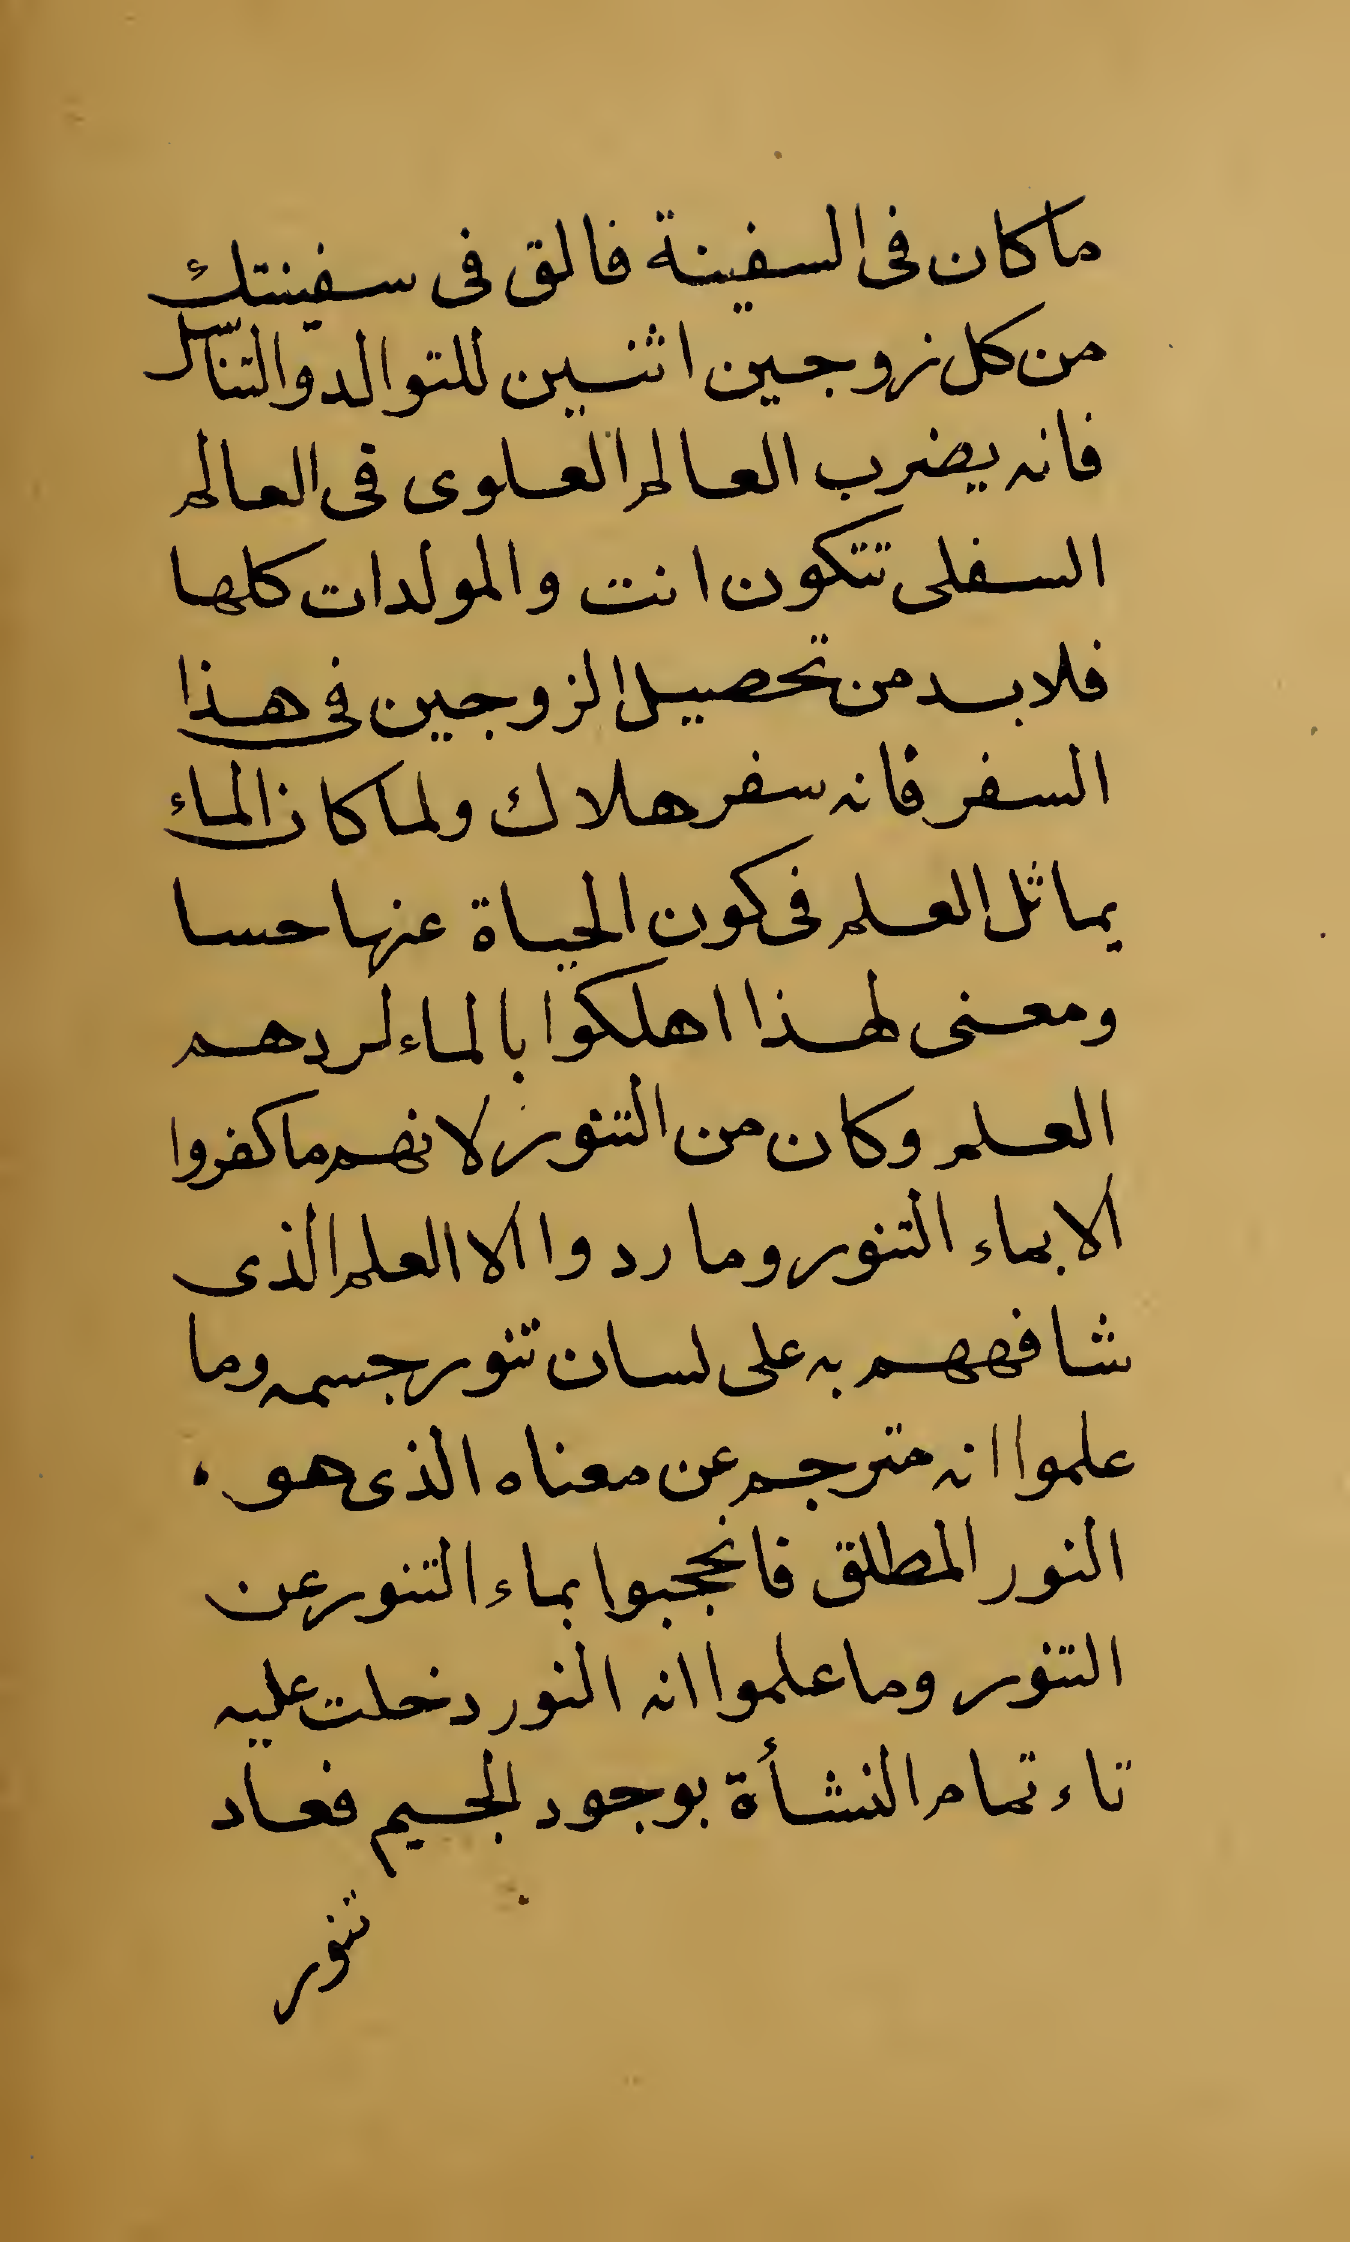 ماكان فى السفينة فالق فى سفينتك
من كل زوجين اثنين للتوالد والتناسل
فانه يضرب العالم العلوى فى العالم
السفلى تتكون انت والمولدات كلها
فلا بد من تحصيل الزوجين فى هذا
السفر فانه سفر هلاك ولما كان الماء
يماثل العلم فى كون الحياة عنها حسا
ومعنى لهذا اهلكوا بالماء لردهم
العلم وكان من التنور لانهم ما كفروا
الا بماء التنور وما ردوا الا العلم الذى
شافههم به على لسان تنور جسمه وما
علموا انه مترجم عن معناه الذى هو
النور المطلق فانحجبوا بماء التنور عن
التنور وما علموا انه النور دخلت عليه
تاء تمام النشأة بوجود الجيم فعاد
تنور